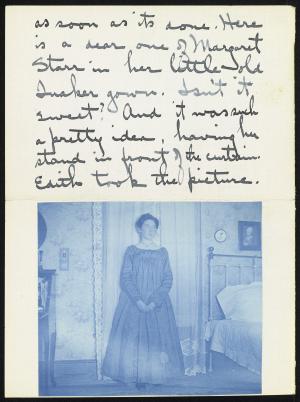 as soon as its done. Here
is a dear one of Margaret
Starr in her little old
Quaker gown. Isn't it
sweet? And it was such
a pretty idea, having her
stand in front of the curtain.
Edith took the picture.